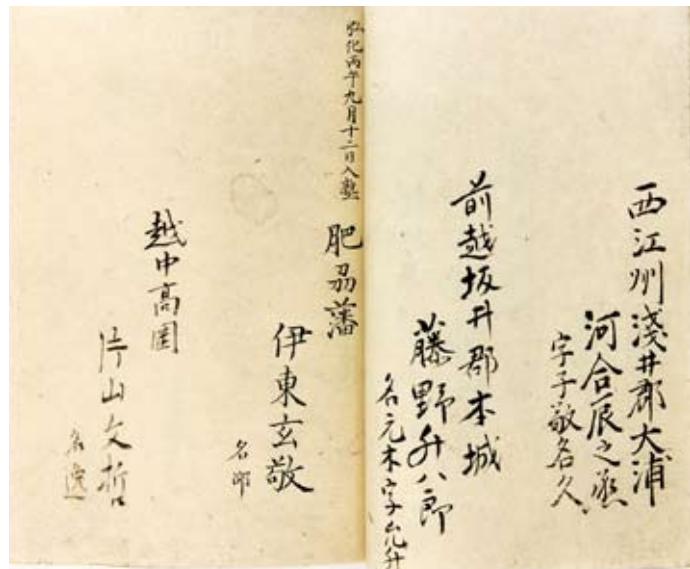 西江州淺井郡大浦
河合辰之丞
字子敬名久
前越坂井郡本城
藤野升八郎
名元木字允升
弘化丙午九月十二日入塾
肥刕藩
伊東玄敬
名
越中高岡
片山文哲
名逸